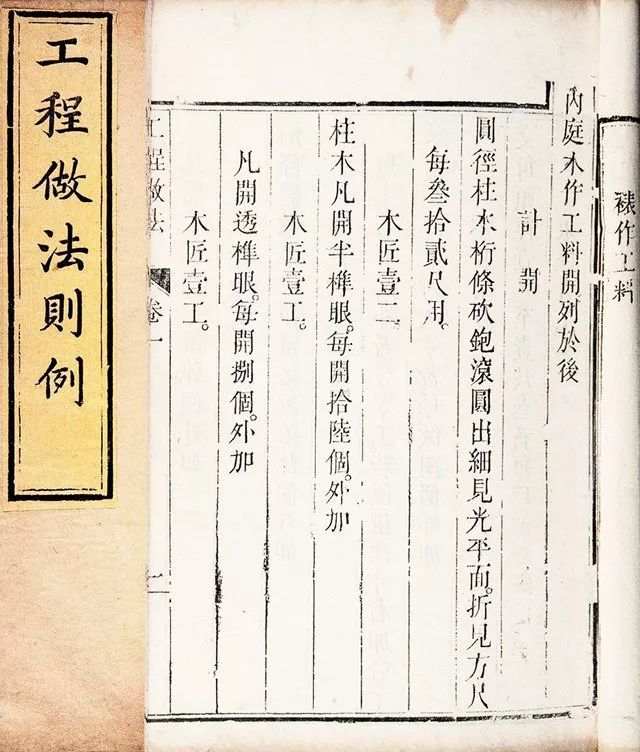 工程做法則例
裱作工料
內庭木作工料開列於後
計開
圓徑柱木桁條砍鉋滾圓出細見光平面。折見方尺
每叁拾貳尺用。
木匠壹二
柱木凡開半榫眼。每開拾陸個。外加
木匠壹工。
凡開透榫眼。每開捌個。外加
木匠壹工。
工程做法 卷一 一